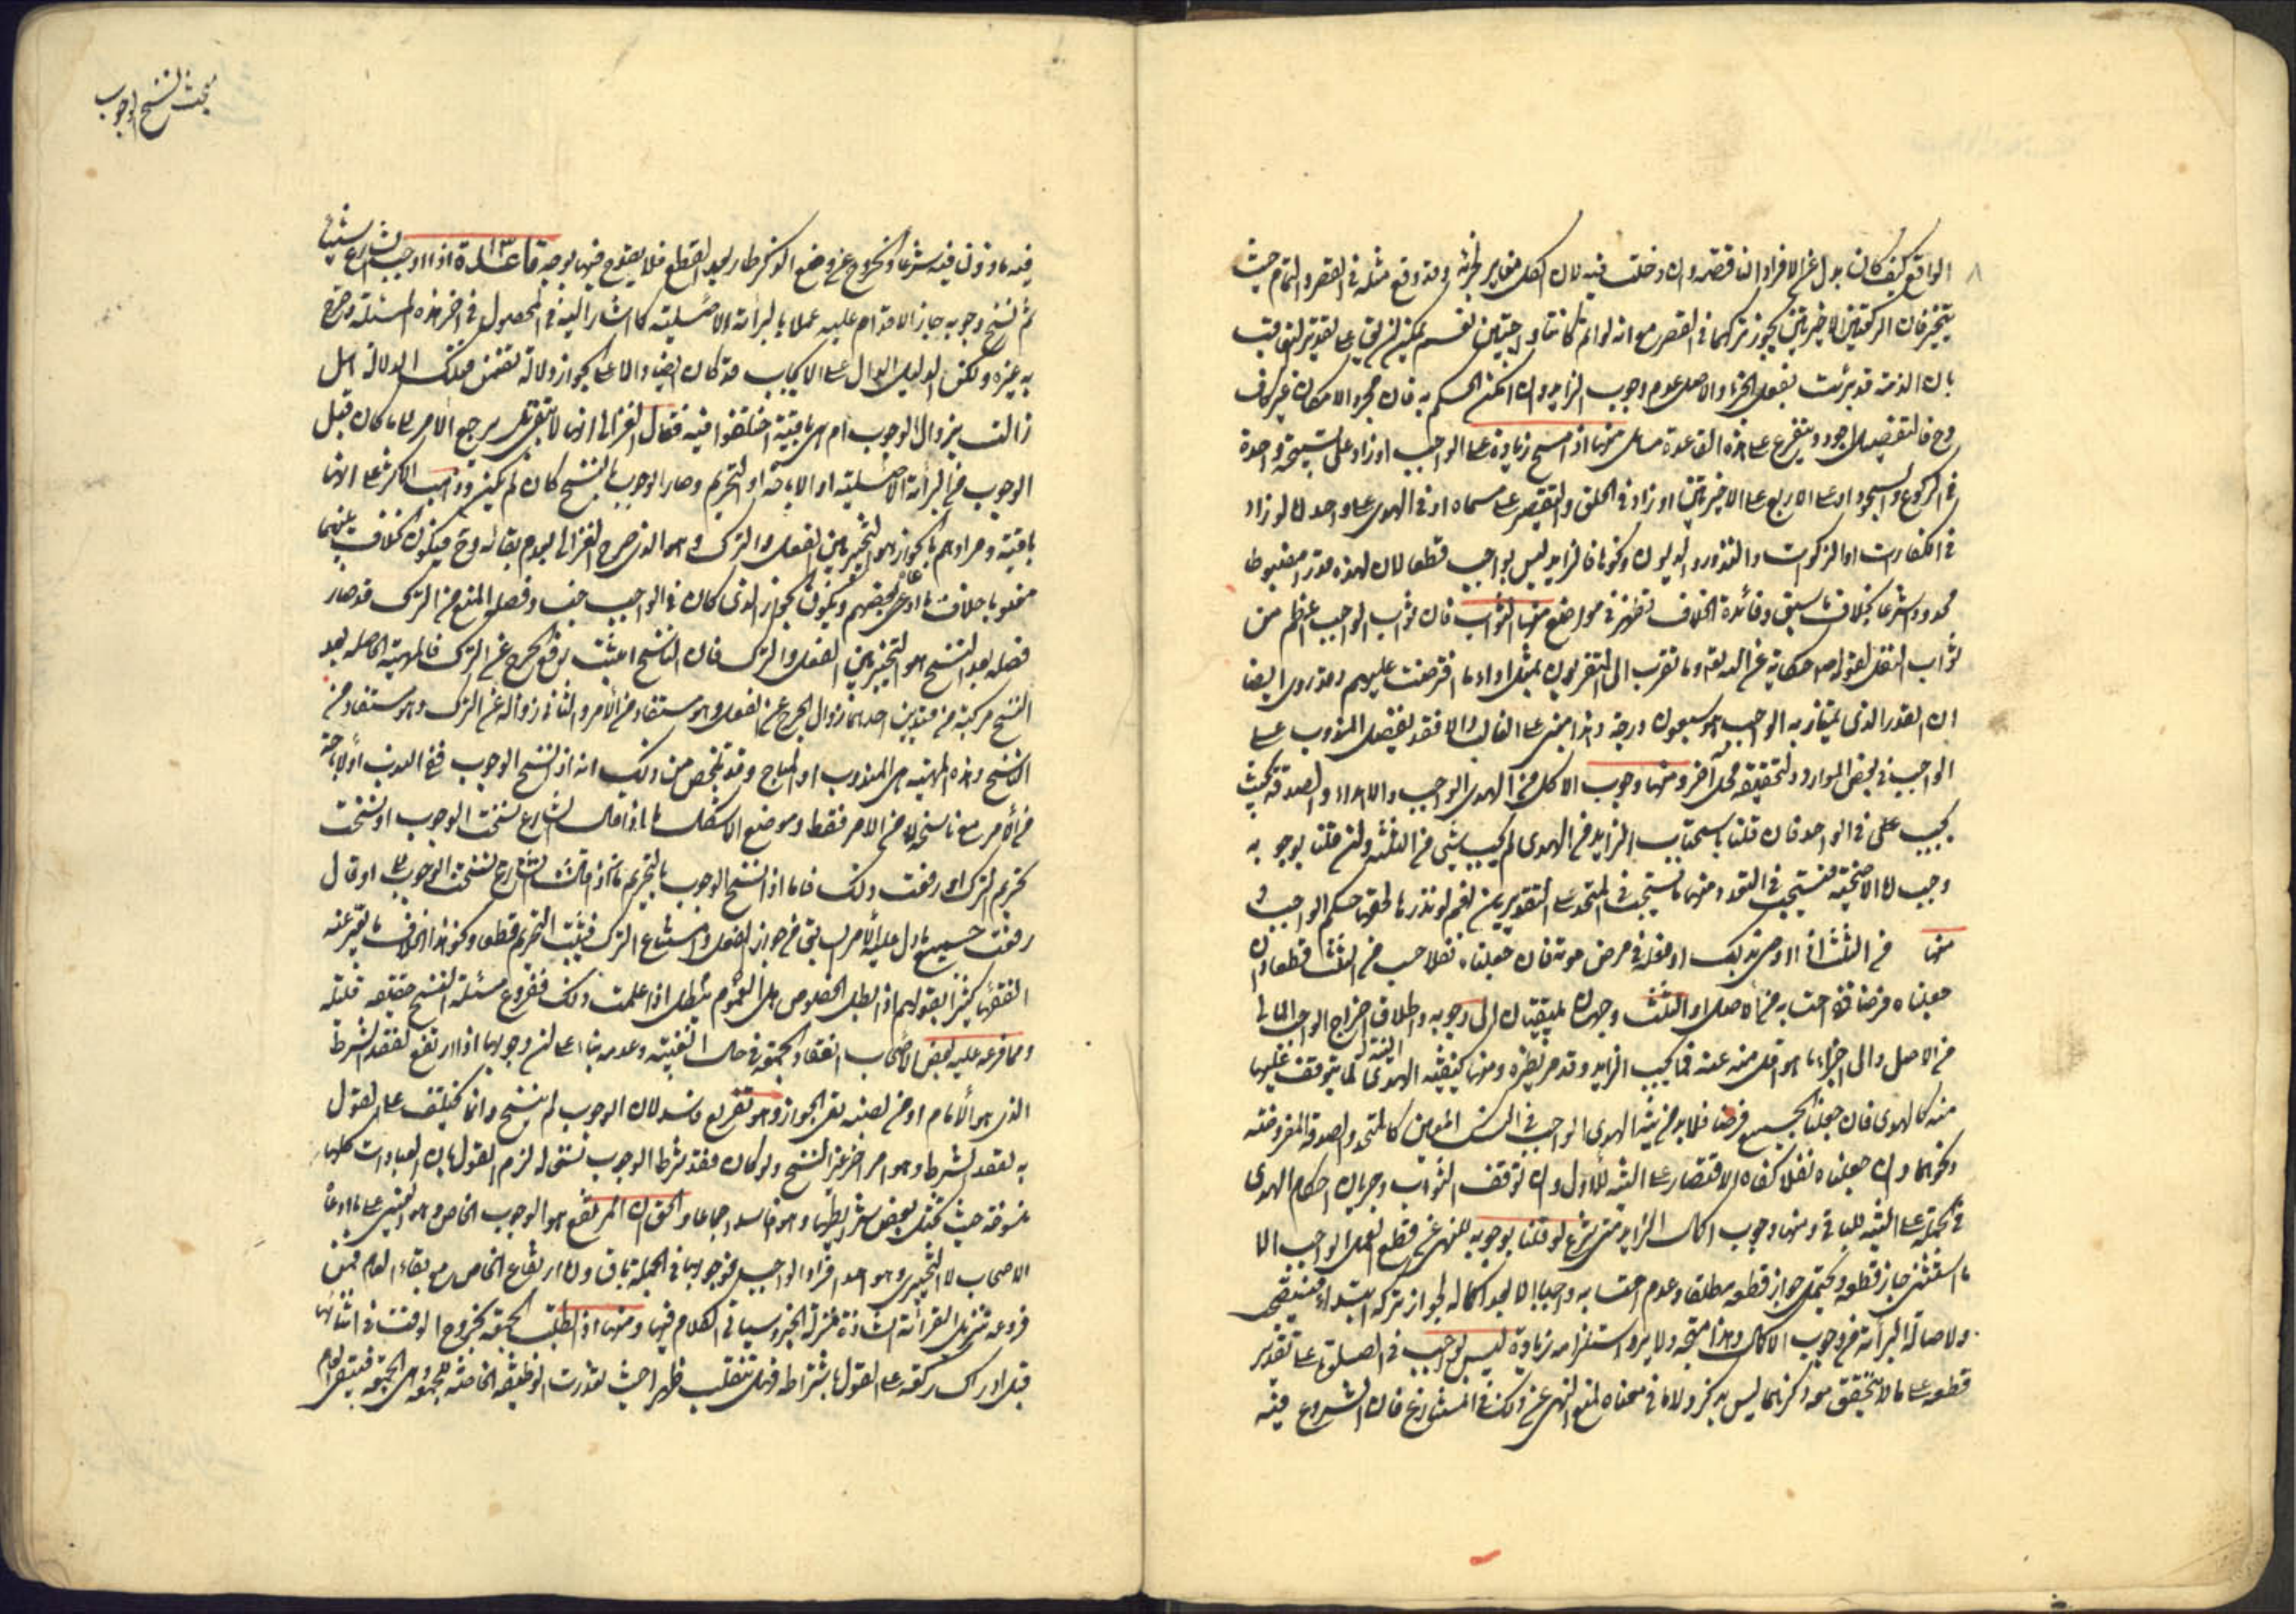 الواقع كيف كان بدل عن الافراد الناقصه وان دخلت فيه لان الكل مغاير لجزئه وقد وقع مثله في القصر والتمام حيث
يتخير فان الركعتين الاخيرتين يجوز تركهما في القصر مع انه لو اتم كانتا واجبتين نعم يمكن الفرق على تقدير التعاقب
بان الذمة قد برئت بفعل الجزء والاصل عدم وجوب الزايد وان امكن الحكم به فان مجرد الامكان غير كاف
وح فالتفصيل اجود ويتفرع على هذه القاعدة مسائل منها اذا مسح زيادة على الواجب او زاد على تسبيحة واحدة
في الركوع والسجود او على الاربع في الاخيرتين او زاد في الحلق والتقصير على مسماه او في الهدى على واحد اما لو زاد
في الكفارت او الزكوت والنذور والديون ونحوها فالزايد ليس بواجب قطعا لان لهذه قدرا مضبوطا
محدودا شرعا بخلاف ما سبق وفائدة الخلاف تظهر في مواضع منها الثواب فان ثواب الواجب اعظم من
ثواب النفل لقوله ص حكاية عن الله تعه وما تقرب الى المتقربون بمثل اداء ما افترضت عليهم وقد روى ايضا
ان القدر الذى يمتاز به الواجب هو سبعون درجة وهذا مبنى على الغالب والا فقد يفضل المندوب على
الواجب في بعض الموارد ولتحقيقه محل آخر ومنها وجوب الاكل من الهدى الواجب والاهداء والصدقة بحيث
يجب على في الواحد فان قلنا باستحباب الزايد في الهدى لم يجب شئ من الثلثة وان قلنا بوجوبه
وجب اما الاضحية فيستحب في التعدد ومنها ما يستحب في المتحد على التقديرين نعم لو نذرها لحقها حكم الواجب و
منها في الثلث اذا اوصى بذلك او فعله في مرض موته فان جعلناه نفلا حسب من الثلث قطعا وان
جعلناه فرضا ففي احتسابه من الاصل او الثلث وجهان يلتفتان الى وجوبه واطلاق اخراج الواجب المالى
من الاصل والى اجزاء ما هو اقل منه عنه فما يجب الزايد وقد مر نظيره ومنها كيفية النية لما يتوقف عليها
منه كالهدى فان جعلنا الجميع فرضا فلا بد من نية الهدى الواجب في الكل كالمتحد والصدقة المفروضه
ونحوهما وان جعلناه نفلا كفاه الاقتصار على النية للاول وان توقف الثواب وجريان احكام الهدى
في الجملة على النية للباقي ومنها وجوب اكمال الزايد متى شرع لو قلنا بوجوبه للنهى عن قطع العمل الواجب الا
ما استثنى جاز قطعه ويحتمل جواز قطعه مطلقا وعدم احتسابه واجبا الا بعد اكماله لجواز تركه ابتداء فيستصحب
ولاصالة البرائة من وجوب الاكمال وهذا متجه ولا يرد استلزامه زيادة ليس بواجب في الصلوة على تقدير
قطعه على ما لا يتحقق معه ذكر لانها ليس بذكر ولا ما في معناه لمنع النهى عن ذلك في المتنازع فان الشروع فيه
مبحث نسخ الوجوب
فيه ماذون فيه شرعا والخروج عن وضع الذكر طار بعد القطع فلا يقدح فيها بوجه قاعدة ١٣ اذا اوجب الشارع شيئا
ثم نسخ وجوبه جاز الاقدام عليه عملا بالبرائة الاصلية كما اشار اليه في المحصول في اخر هذه المسئلة وصرح
به غيره ولكن الدليل الدال على الايجاب قد كان ايضا دالا على الجواز دلالة تضمن فتلك الدلالة هل
زالت بزوال الوجوب ام هى باقية اختلفوا فيه فقال الغزالى انها لا تبقى بل يرجع الامر الى ما كان قبل
الوجوب من البرائة الاصلية او الاباحة او التحريم وصار الوجوب بالنسخ كان لم يكن وذهب الاكثر الى انها
باقية ومرادهم بالجواز هو التخيير بين الفعل والترك وهو الذى صرح الغزالى بعدم بقائه وح فيكون الخلاف بينهما
معنويا خلافا لما ادعى بعضهم ويكون الجواز الذى كان في الواجب جنسا وفصله المنع من الترك قد صار
فصله بعد النسخ هو التخيير بين الفعل والترك فان الناسخ اثبت رفع الحرج عن الترك فالماهية الحاصله بعد
النسخ مركبة من قيدين احدهما زوال الحرج عن الفعل وهو مستفاد من الامر والثانى زواله عن الترك وهو مستفاد من
الناسخ وهذه الماهية هى المندوب او المباح وقد تلخص من ذلك انه اذا نسخ الوجوب بقى الندب او الاباحة
من الامر مع ناسخه لا من الامر فقط وموضع الاشكال ما اذا قال الشارع نسخت الوجوب او نسخت
تحريم الترك او رفعت ذلك فاما اذا نسخ الوجوب بالتحريم فانه اذا قال الشارع نسخت الوجوب او قال
رفعت جميع ما دل عليه الامر السابق من جواز الفعل وامتناع الترك فيثبت التحريم قطعا ونحو هذا الخلاف ما يعبر عنه
الفقهاء كثيرا بقولهم اذا بطل الخصوص هل العموم يبطل اذا علمت ذلك ففروع مسئلة النسخ حقيقة قليلة
ومما فرعه عليه بعض الاصحاب انعقاد الجمعة في حال الغيبة وعدمه بناء على ان وجوبها اذا ارتفع لفقد الشرط
الذى هو الامام او من نصبه بقى الجواز وهو تفريع فاسد لان الوجوب لم ينسخ وانما تخلف على القول
به لفقد الشرط وهو امر اخر غير النسخ ولو كان فقد شرط الوجوب نسخا له لزم القول بان العبادات كلها
منسوخة حيث تختل بعض شرايطها وهو فاسد اجماعا والحق ان المرتفع هو الوجوب الخاص وهو العينى على ما ادعاه
الاصحاب لا التخييرى وهو احد افراد الواجب فوجوبها في الجملة باق وان ارتفاع الخاص مع بقاء العام فمن
فروعه تنزيل القرائة الشاذة منزلة الخبر وسياتى الكلام فيها ومنها اذا بطلت الجمعة لخروج الوقت في اثنائها
قبل ادراك ركعة على القول باشتراطه فهل تنقلب ظهرا حيث تعذرت الوظيفة الخاصة للجمعة وهى الجمعة فيبقى العام